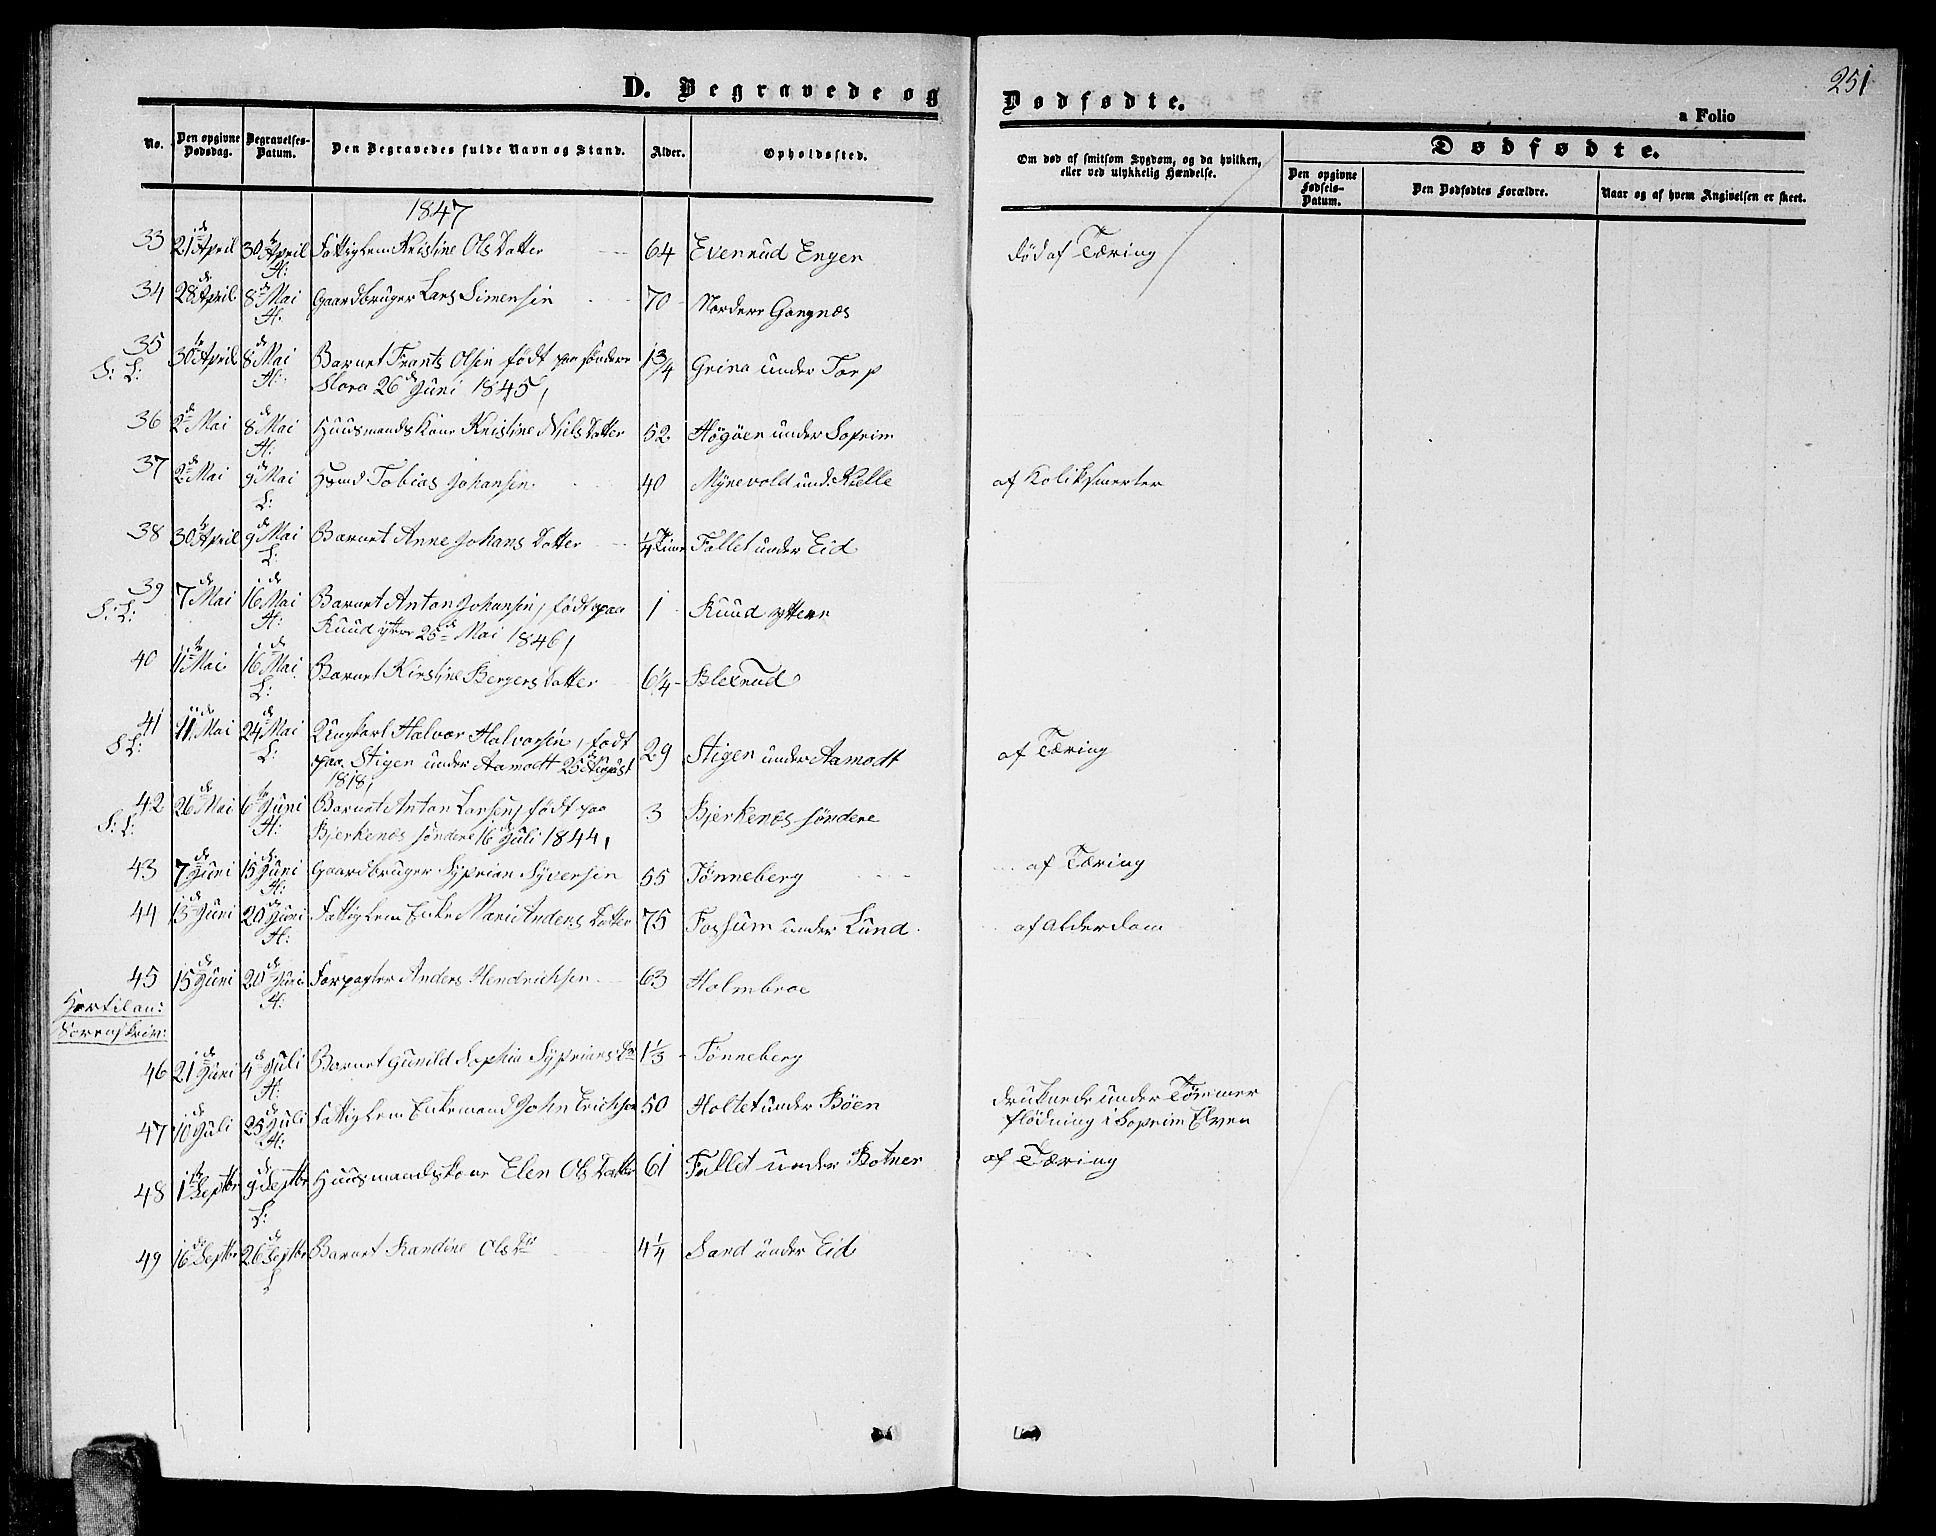 251
D. Begravede og Dødfødte.
a Folio
No. Den opgivne Dødsdag. Begravelses-Datum. Den Begravedes fulde Navn og Stand. Alder. Opholdssted. Om død af smitsom Sygdom, og da hvilken, eller ved ulykkelig Hændelse. Dødfødte.
Den opgivne Fødsels-Datum. Den Dødfødtes Forældre. Naar og af hvem Angivelsen er skeet.
1847
33 21de April 30te April Fattiglem Kristine Ols Datter 64 Evenrud Engen død af Tæring
H:
34 28de April 8de Mai Gaardbruger Lars Simensen 70 Nordere Gangnæs
H:
35 30te April 8de Mai Barnet Frantz Olsen født paa søndere 1 3/4 Grina under Torp
S: L: H: Slora 26de Juni 1845,
36 2de Mai 8de Mai Huusmands Kone Kristine Niels Datter 52 Høgøen under Soprim
H:
37 2de Mai 9de Mai Hsmd Tobias Johansen 40 Mynevold und. Kulle af Koliksmerter
L:
38 30te April 9de Mai Barnet Anne Johans Datter 1/4 Time Fallet under Eid
L:
39 7de Mai 16de Mai Barnet Anton Johansen, født paa 1 Ruud yttere
S: L: H: Ruud yttre 25de Mai 1846,
40 11te Mai 16de Mai Barnet Kirstine Bergers Datter 6 1/4 Blexrud
L:
41 11te Mai 24de Mai Ungkarl Halvor Halvorsen, født 29 Stigen under Aamodt af Tæring
S: L: L: paa Stigen under Aamodt 25de August
1818,
42 26de Mai 6te Juni Barnet Anton Larsen, født paa 3 Bjerkenæs søndere
S: L: H: Bjerkenæs søndere 16de Juli 1844,
43 7de Juni 15de Juni Gaardbruger Syprian Syversen 55 Tønneberg af Tæring
H:
44 13de Juni 20de Juni Fattiglem Enke Marie Anders Datter 75 Fossum under Lund af Alderdom
H:
45 15de Juni 20de Juni Forpagter Anders Hendrichsen 63 Holmbroe
H:
46 21de Juni 4de Juli Barnet Gunild Sophia Syprians Dtr 1 1/3 Tønneberg
H:
47 10de Juli 25de Juli Fattiglem Enkemand John Erichsen 50 Holtet under Bøen druknede under Tømmer
H: flødning i Soprim Elven
48 1te Septbr 9de Septbr Huusmandskone Elen Ols Datter 61 Fallet under Botner af Tæring
L:
49 16de Septbr 26de Septbr Barnet Kandine Ols Dtr 4 1/4 Sand under Eid
L